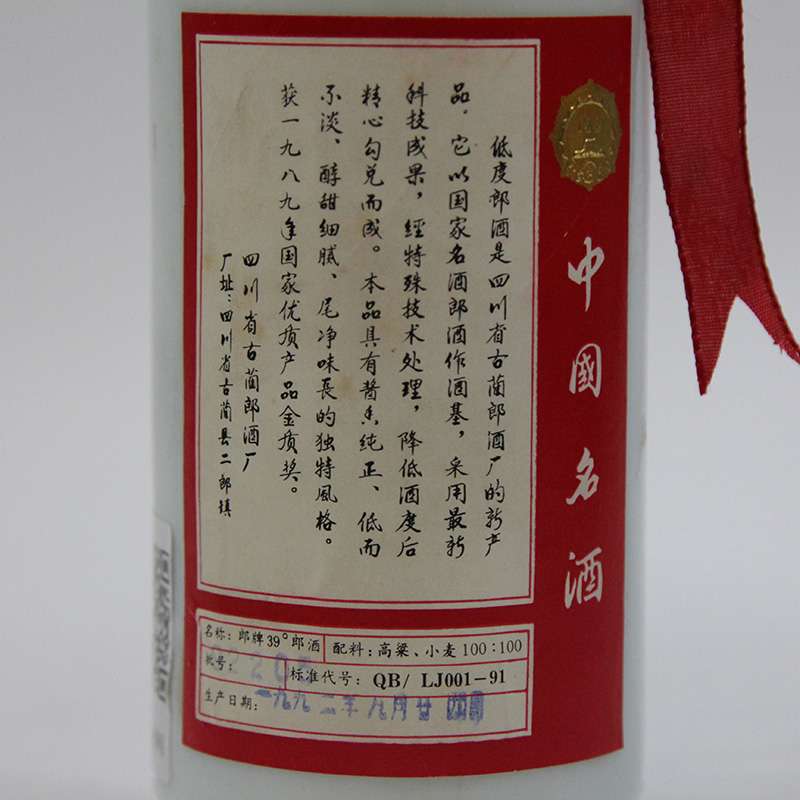 中國名酒
低度郎酒是四川省古蔺郎酒厂的新产
品，它以国家名酒郎酒作酒基，采用最新
科技成果，经特殊技术处理，降低酒度后
精心勾兑而成。本品具有酱香纯正、低而
不淡、醇甜细腻、尾净味長的独特風格。
获一九八九年国家优质产品金质奖。
四川省古蔺郎酒厂
厂址：四川省古蔺县二郎镇
名称：郎牌39°郎酒
配料：高粱、小麦100：100
批号：
标准代号：QB/ LJ001-91
生产日期：一九九二年八月廿四日